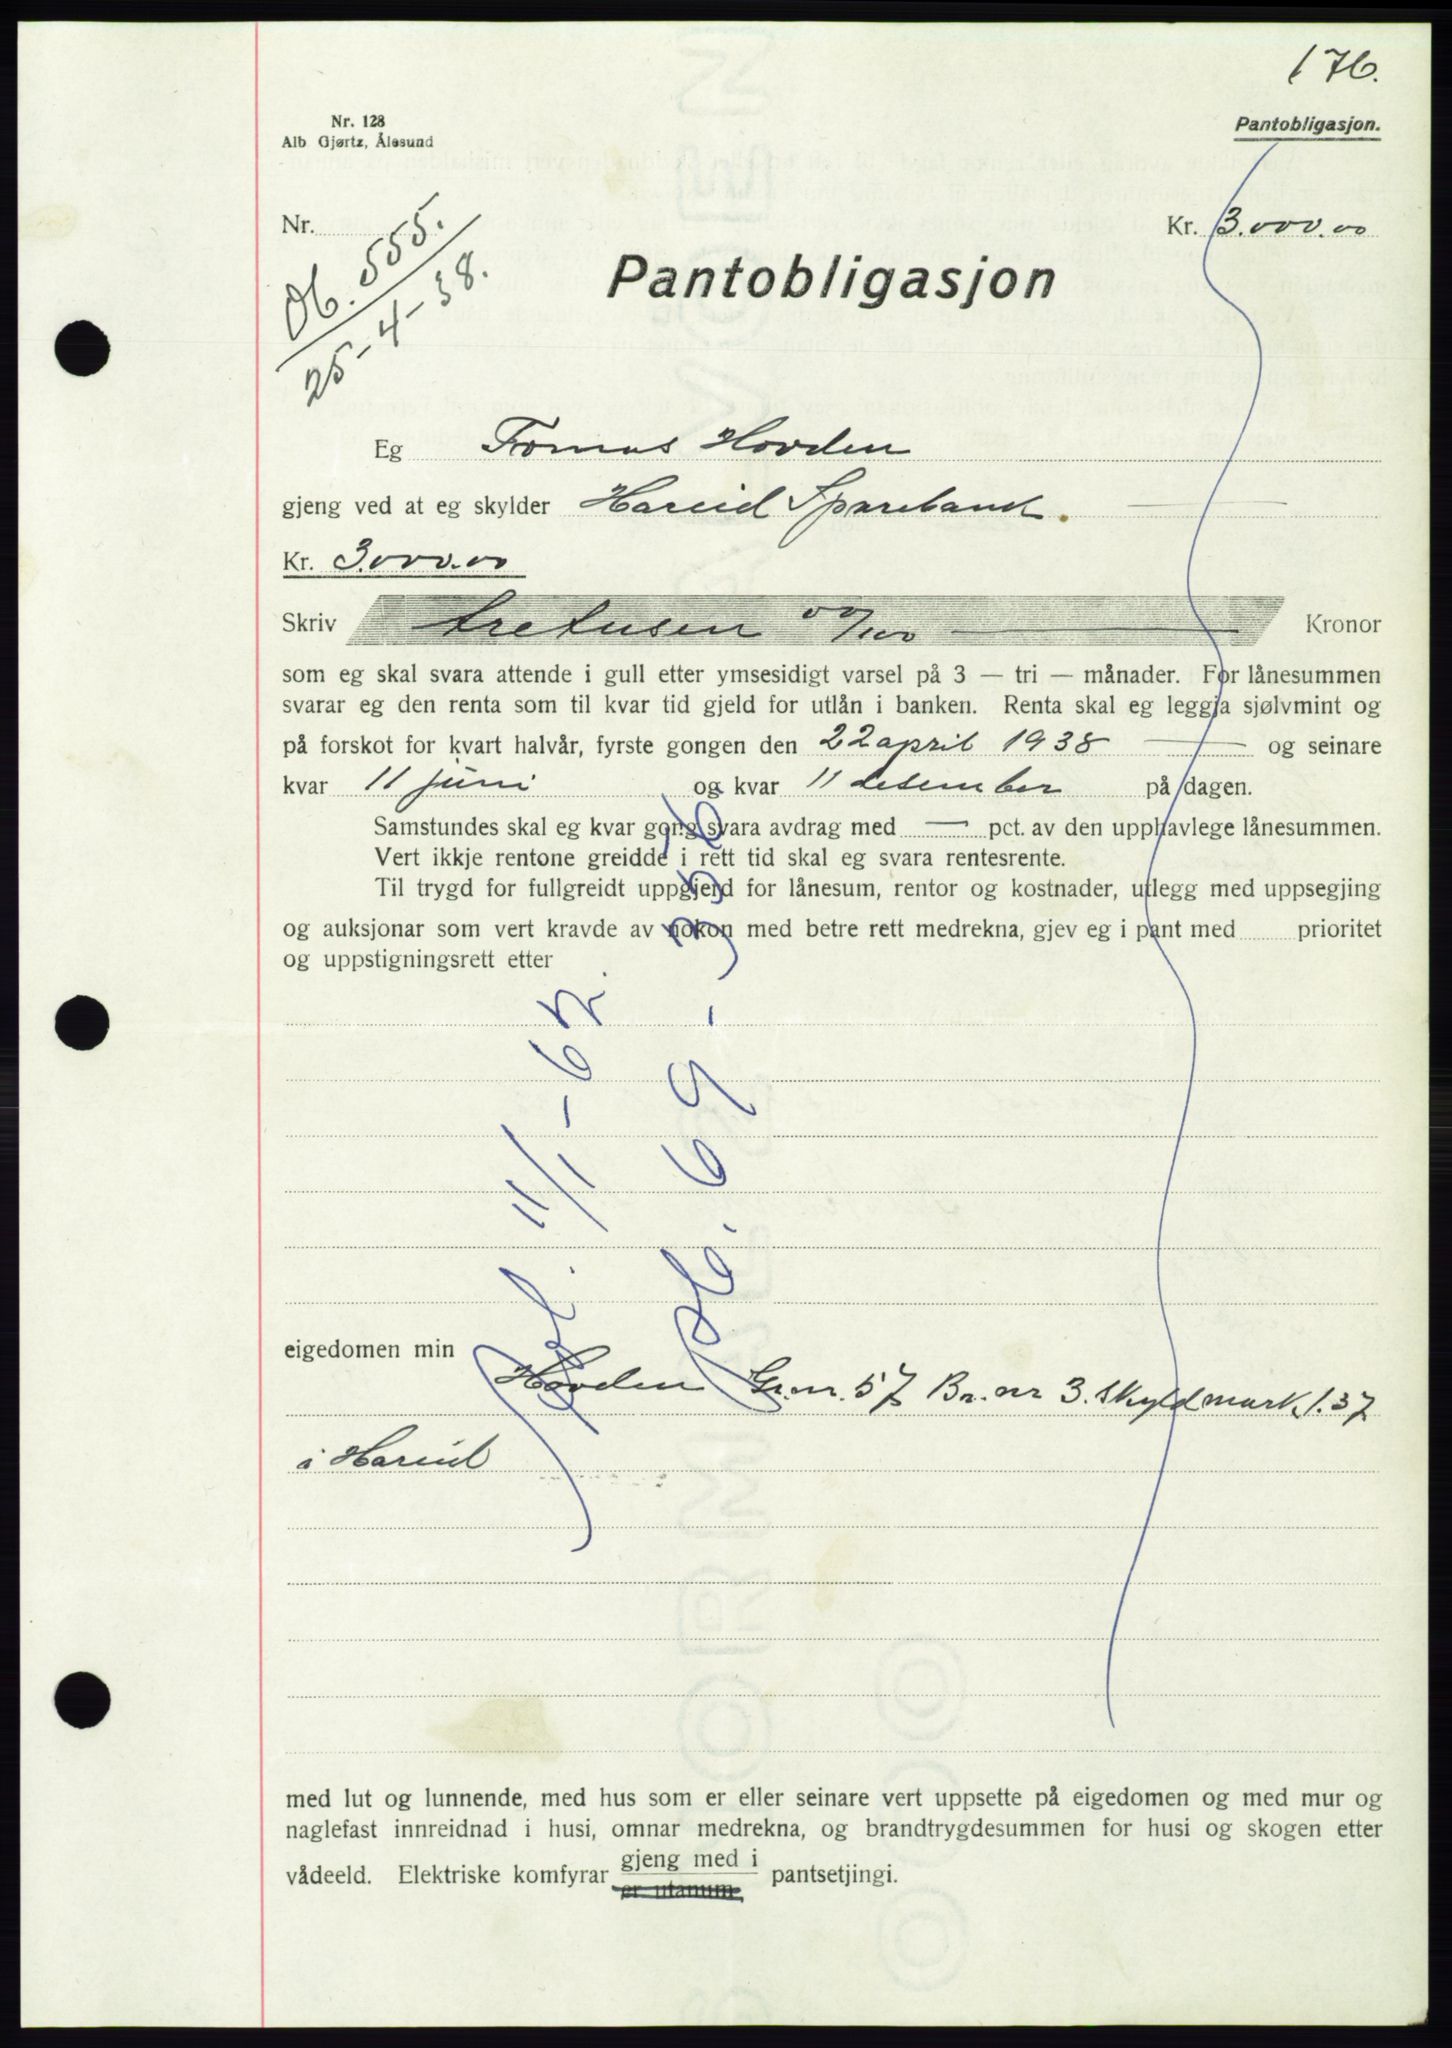 176.
Nr. 128
Alb Gjørtz, Ålesund
Pantobligasjon.
Nr.
Kr. 3.000.00
Ob. 555.
25-4-38.
Pantobligasjon
Eg Tomas Hovden
gjeng ved at eg skylder Hareid Sparebank.
Kr. 3.000.00
Skriv tretusen 00/100 Kronor
som eg skal svara attende i gull etter ymsesidigt varsel på 3 — tri — månader. For lånesummen
svarar eg den renta som til kvar tid gjeld for utlån i banken. Renta skal eg leggja sjølvmint og
på forskot for kvart halvår, fyrste gongen den 22 april 1938 — og seinare
kvar 11 juni og kvar 11 desember på dagen.
Samstundes skal eg kvar gong svara avdrag med — pct. av den upphavlege lånesummen.
Vert ikkje rentone greidde i rett tid skal eg svara rentesrente.
Til trygd for fullgreidt uppgjerd for lånesum, rentor og kostnader, utlegg med uppsegjing
og auksjonar som vert kravde av nokon med betre rett medrekna, gjev eg i pant med prioritet
og uppstigningsrett etter
11/1-62.
Pb. 69 - 356
eigedomen min
Hovden Gr.nr. 57 Br.nr 3. skyldmark 1.37
i Hareid
med lut og lunnende, med hus som er eller seinare vert uppsette på eigedomen og med mur og
naglefast innreidnad i husi, omnar medrekna, og brandtrygdesummen for husi og skogen etter
vådeeld. Elektriske komfyrar gjeng med i pantsetjingi.
er utanum